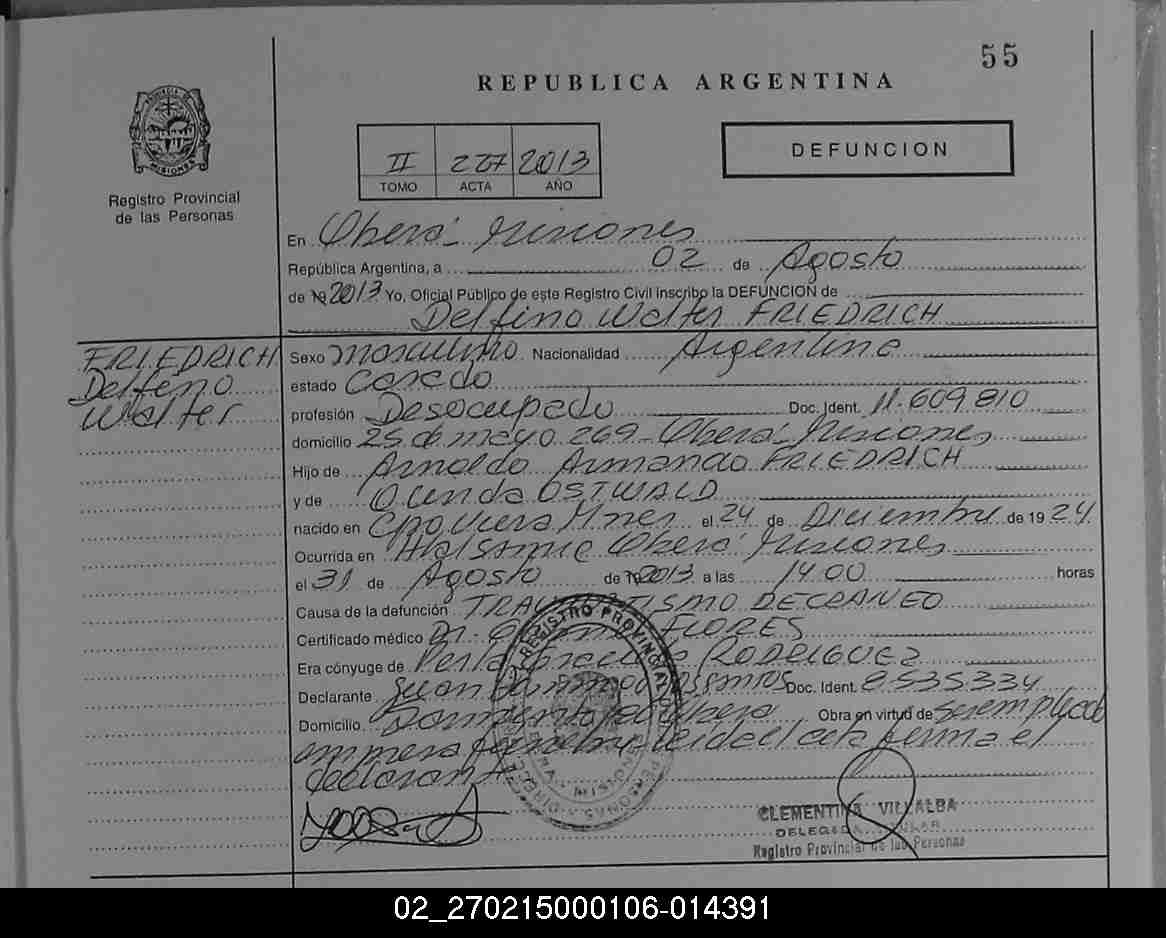 55
REPUBLICA ARGENTINA
PROVINCIA DE MISIONES
Registro Provincial
de las Personas
II 227 2013
TOMO ACTA AÑO
DEFUNCION
En Oberá Misiones
República Argentina, a 02 de Agosto
de 19 2013 Yo, Oficial Público de este Registro Civil inscribo la DEFUNCION de
Delfino Walter FRIEDRICH
FRIEDRICH
Delfino
Walter
Sexo masculino Nacionalidad Argentina
estado Casado
profesión Desocupado Doc. Ident. 11.609.810
domicilio 25 de mayo 269 Oberá Misiones
Hijo de Arnoldo Armando FRIEDRICH
y de OSTWALD
nacido en el 24 de Diciembre de 19 24
Ocurrida en Oberá Misiones
el 31 de Agosto de 19 2013 a las 14.00 horas
Causa de la defunción TRAUMATISMO DE CRANEO
Certificado médico Dr. FLORES
Era cónyuge de RODRIGUEZ
Declarante Juan Doc. Ident. 8535334
Domicilio Obera Obra en virtud de
empresa leida el acta firma el
declarante
REGISTRO PROVINCIAL DE LAS PERSONAS
CLEMENTINA VILLALBA
DELEGADA TITULAR
Registro Provincial de las Personas
02_270215000106-014391